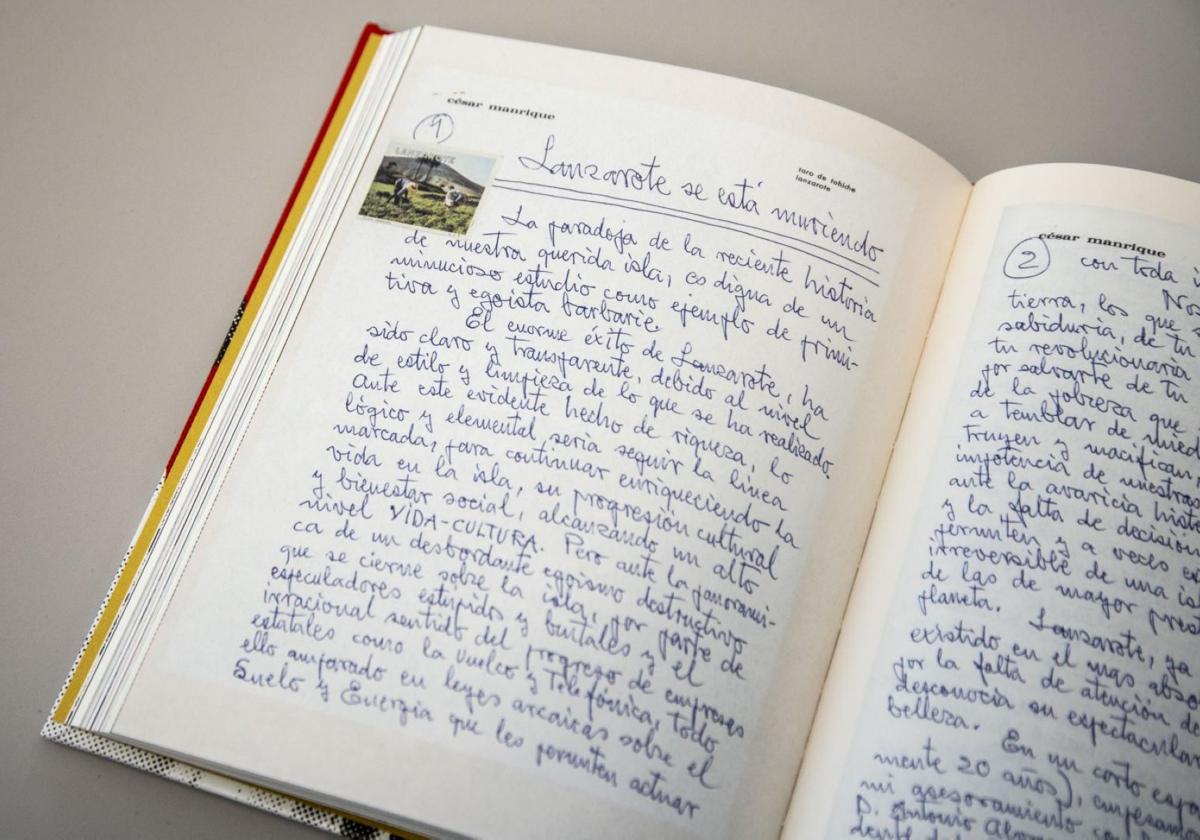 césar manrique
1
LANZAROTE
Lanzarote se está muriendo
taro de tahiche
lanzarote
La paradoja de la reciente historia
de nuestra querida isla, es digna de un
minucioso estudio como ejemplo de primi-
tiva y egoista barbarie.
El enorme éxito de Lanzarote, ha
sido claro y transparente, debido al nivel
de estilo y limpieza de lo que se ha realizado.
Ante este evidente hecho de riqueza, lo
lógico y elemental seria seguir la linea
marcada, para continuar enriqueciendo la
vida en la isla, su progresión cultural
y bienestar social, alcanzando un alto
nivel VIDA-CULTURA. Pero ante la panorami-
ca de un desbordante egoismo destructivo
que se cierne sobre la isla, por parte de
especuladores estupidos y brutales y el
irracional sentido del progreso de empresas
estatales como la Unelco y Telefónica, todo
ello amparado en leyes arcaicas sobre el
Suelo y Energia que les permiten actuar
césar manrique
2
con toda
tierra, los que
sabiduria, de tu
tu revolucionaria
por salvarte de tu
de la pobreza que
a temblar de
truyen y macifican
impotencia de nuestras
ante la avaricia
y la falta de decision
permiten y a veces
irreversible de una
de las de mayor
planeta.
Lanzarote, ya
existido en el mas
por la falta de atención
desconocia su espectacular
belleza.
En un corto
mente 20 años), empezam
mi asesoramiento
D. Antonio